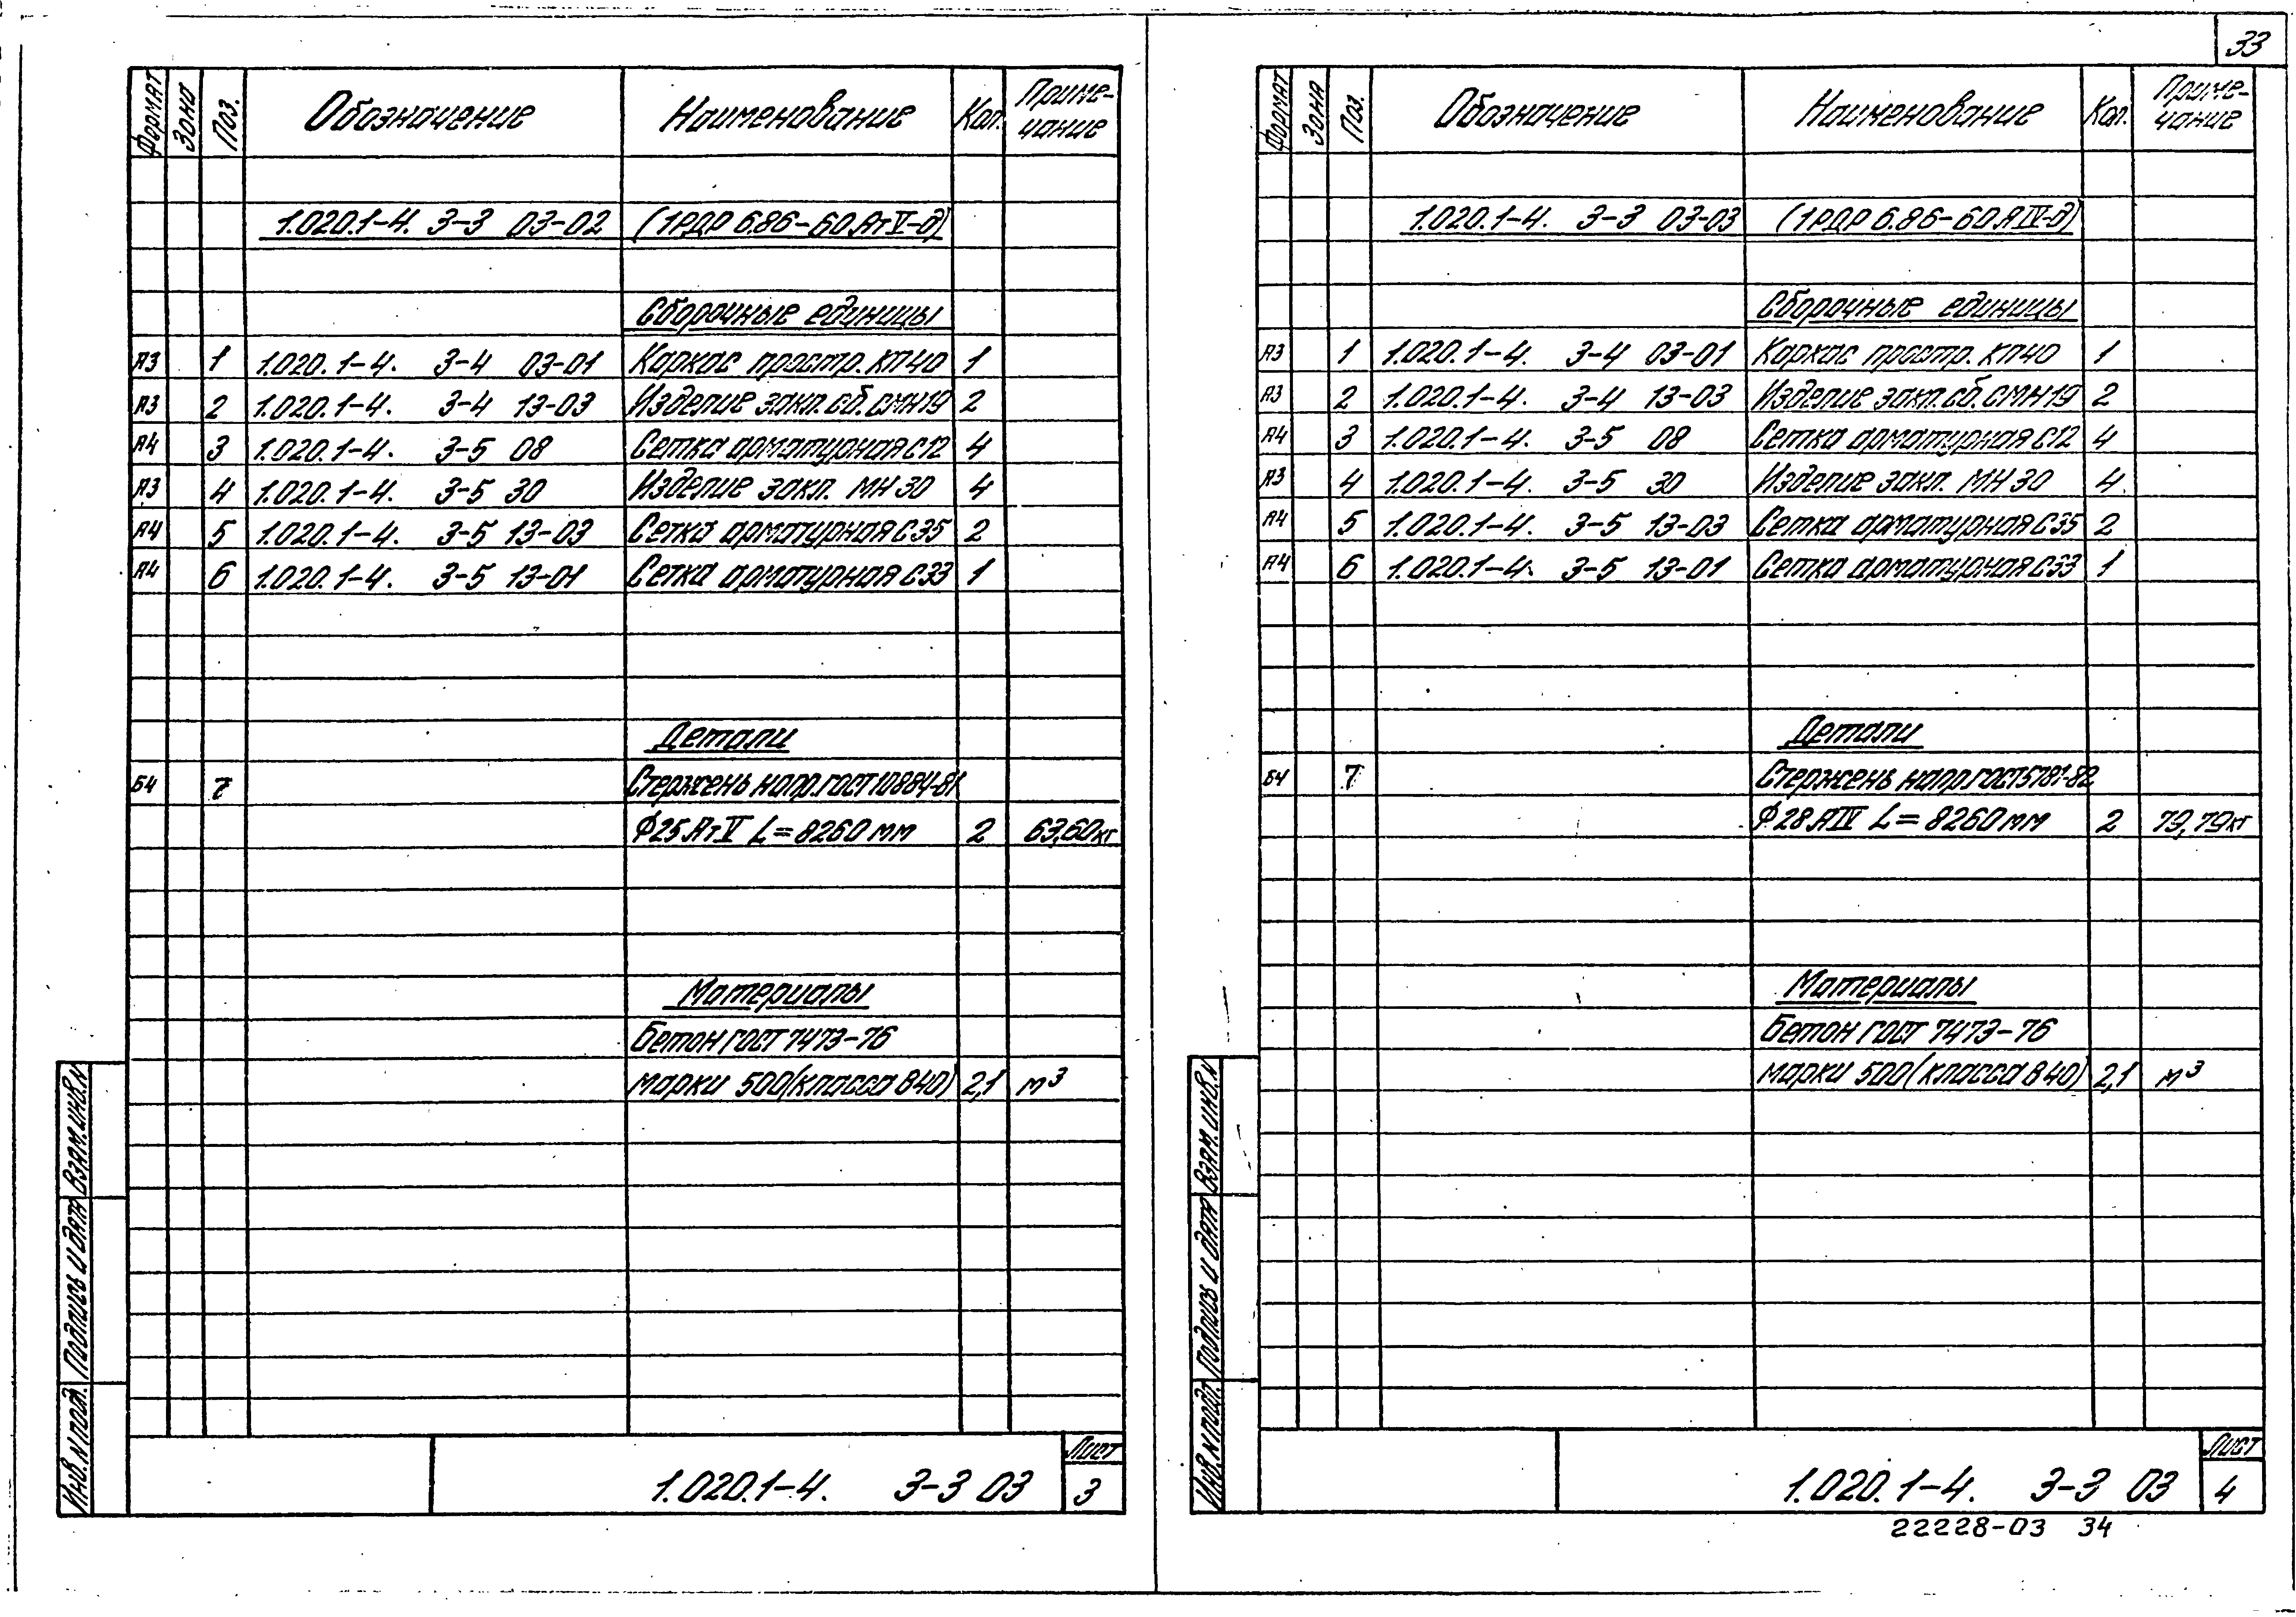 33
Формат Зона Поз. Обозначение Наименование Кол. Приме-
чание
1.020.1-4. 3-3 03-02 (1РДР 6.86-60 АтV-д)
Сборочные единицы
А3 1 1.020.1-4. 3-4 03-01 Каркас простр. КП40 1
А3 2 1.020.1-4. 3-4 13-03 Изделие закл. сб. СМН19 2
А4 3 1.020.1-4. 3-5 08 Сетка арматурная С12 4
А3 4 1.020.1-4. 3-5 30 Изделие закл. МН 30 4
А4 5 1.020.1-4. 3-5 13-03 Сетка арматурная С35 2
А4 6 1.020.1-4. 3-5 13-01 Сетка арматурная С33 1
Детали
Б4 7 Стержень напр. ГОСТ 10884-81
Ф25 АтV L=8260 мм 2 63,60 кг
Материалы
Бетон ГОСТ 7473-76
марки 500 (класса В40) 2,1 м³
Инв.N подл. Подпись и дата Взам.инв.N
1.020.1-4. 3-3 03
Лист
3
Формат Зона Поз. Обозначение Наименование Кол. Приме-
чание
1.020.1-4. 3-3 03-03 (1РДР 6.86-60 АIV-д)
Сборочные единицы
А3 1 1.020.1-4. 3-4 03-01 Каркас простр. КП40 1
А3 2 1.020.1-4. 3-4 13-03 Изделие закл. сб. СМН19 2
А4 3 1.020.1-4. 3-5 08 Сетка арматурная С12 4
А3 4 1.020.1-4. 3-5 30 Изделие закл. МН 30 4
А4 5 1.020.1-4. 3-5 13-03 Сетка арматурная С35 2
А4 6 1.020.1-4. 3-5 13-01 Сетка арматурная С33 1
Детали
Б4 7 Стержень напр. ГОСТ 5781-82
Ф28 АIV L=8260 мм 2 79,79 кг
Материалы
Бетон ГОСТ 7473-76
марки 500 (класса В40) 2,1 м³
Инв.N подл. Подпись и дата Взам.инв.N
1.020.1-4. 3-3 03
Лист
4
22228-03 34